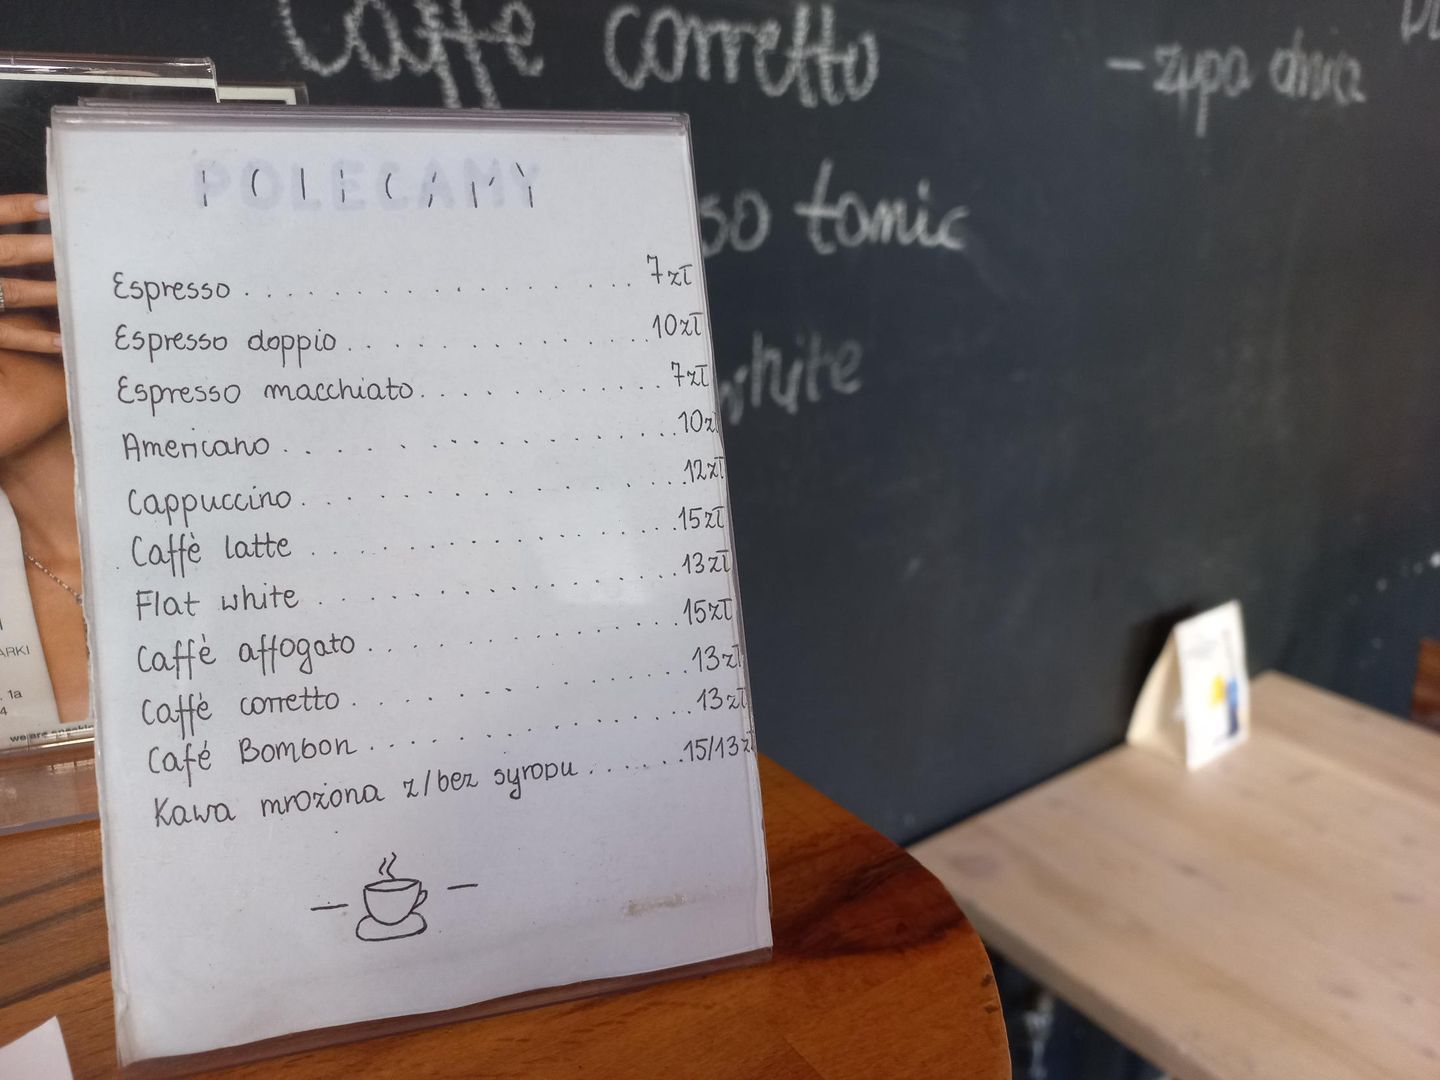 Caffè corretto
- zupa dnia
so tonic
white
POLECAMY
Espresso . . . . . . . . . . . . . . 7zł
Espresso doppio . . . . . . . . . . . 10zł
Espresso macchiato . . . . . . . . . . 7zł
Americano . . . . . . . . . . . . . . 10zł
Cappuccino . . . . . . . . . . . . . . 12zł
Caffè latte . . . . . . . . . . . . . . 15zł
Flat white . . . . . . . . . . . . . . 13zł
Caffè affogato . . . . . . . . . . . . 15zł
Caffè corretto . . . . . . . . . . . . 13zł
Café Bombon . . . . . . . . . . . . . 13zł
Kawa mrożona z/bez syropu . . . . . . 15/13zł
ARKI
. 1a
4
we are speakin